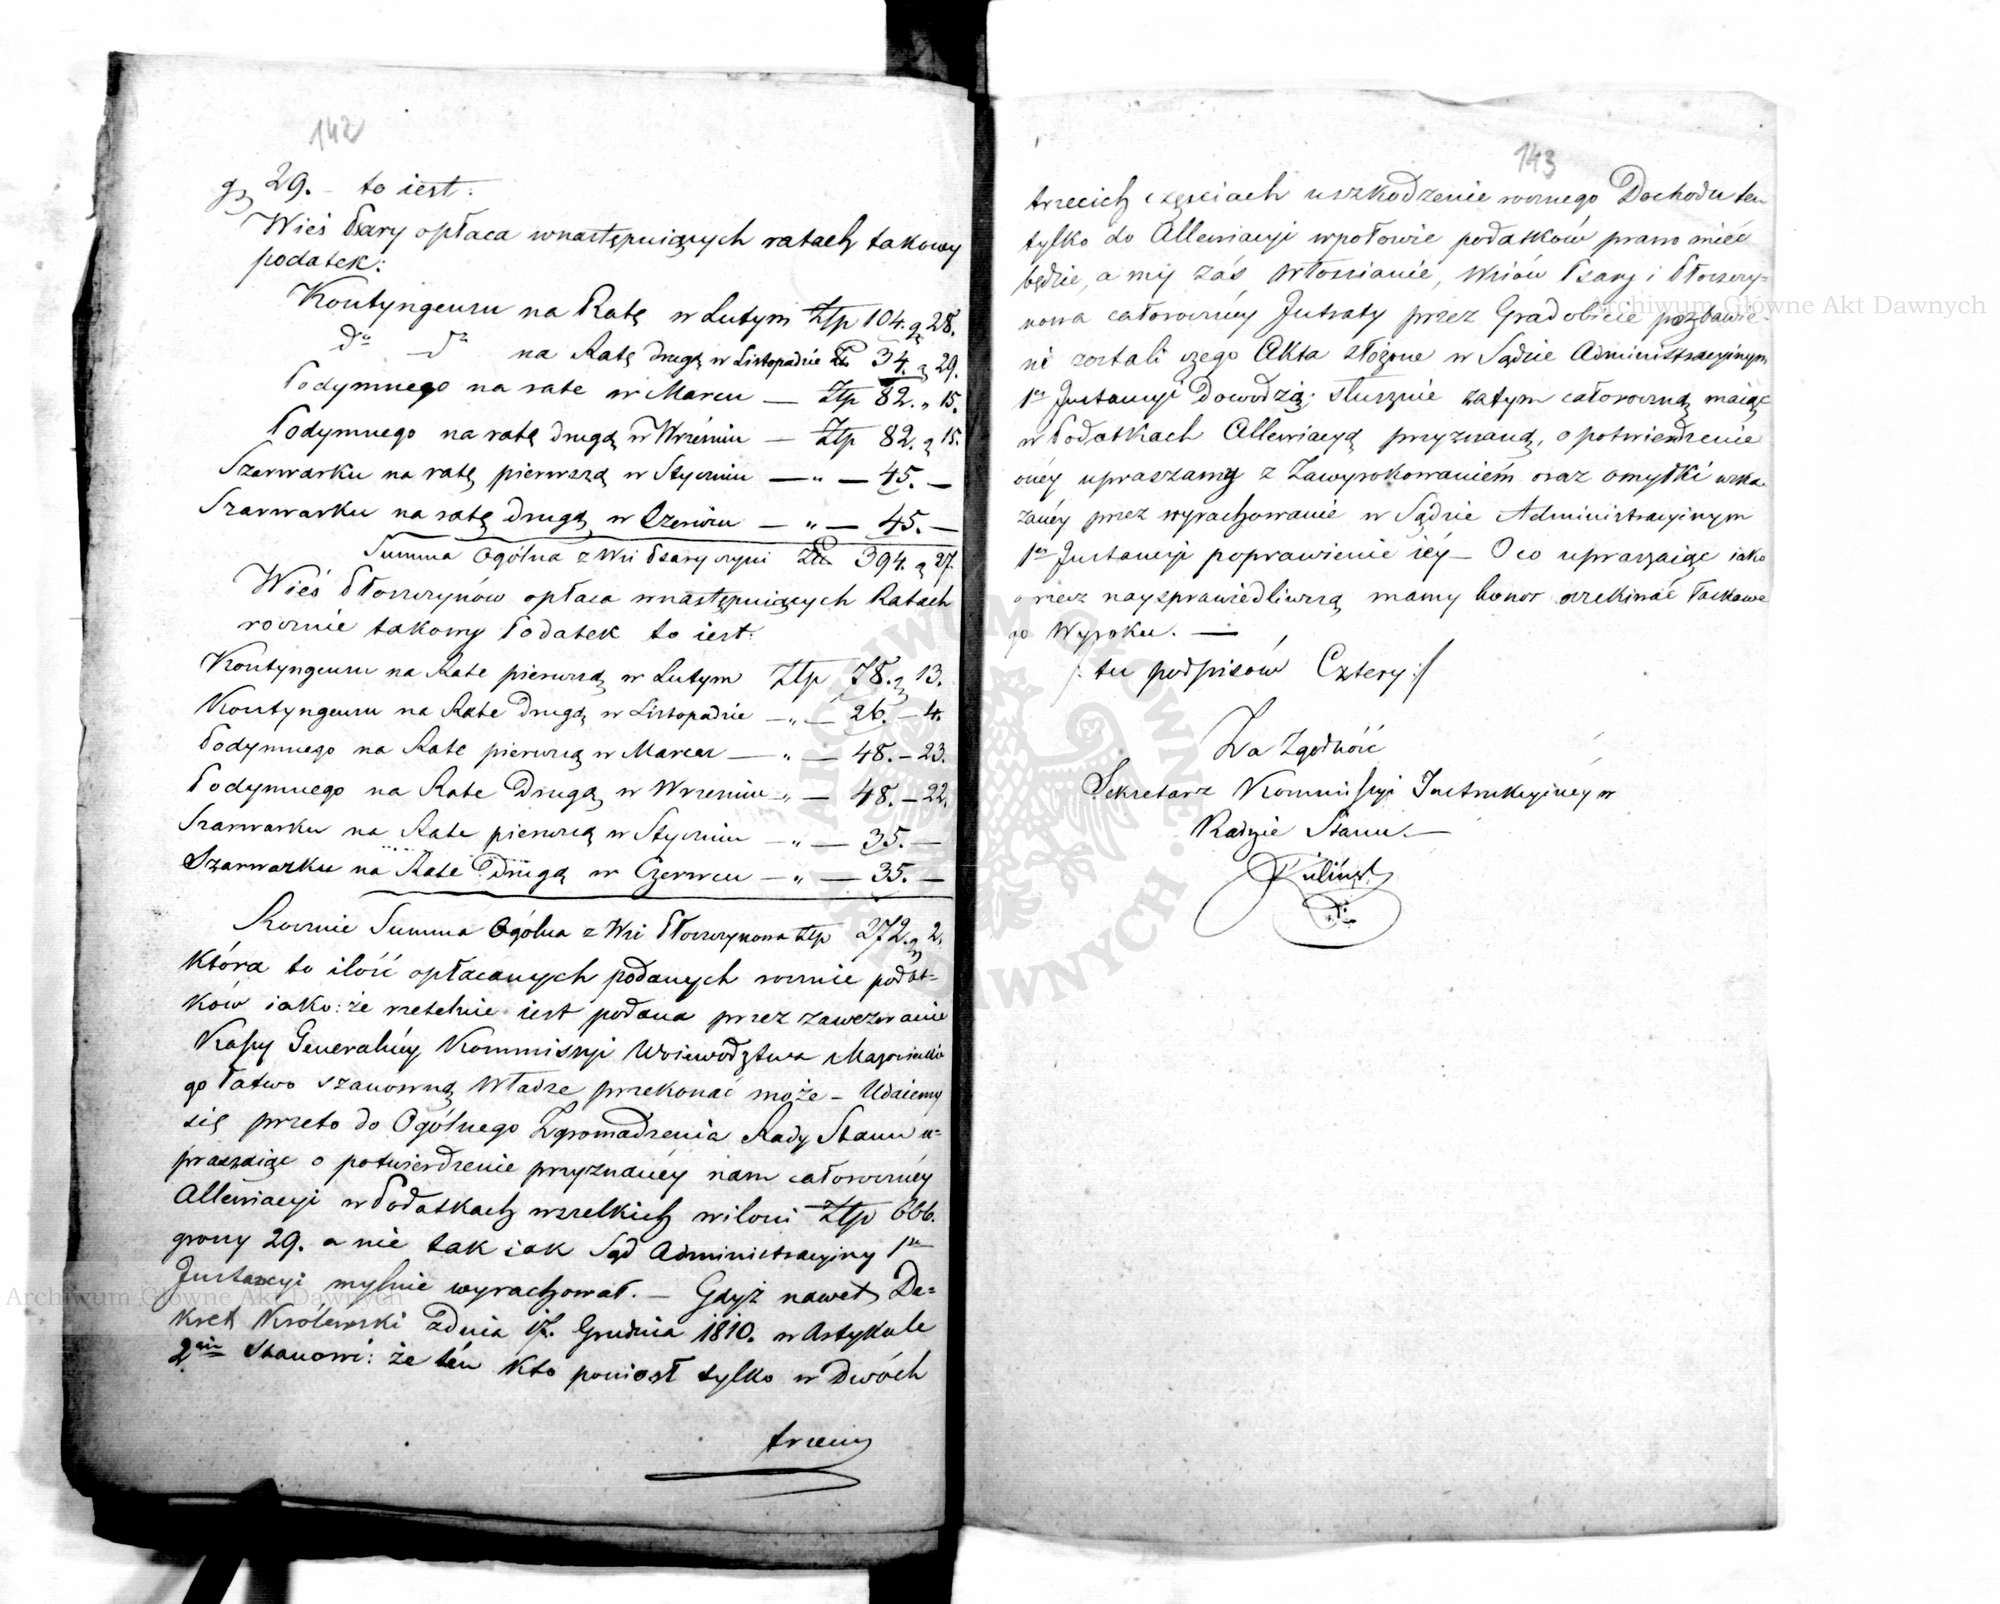 142
gr 29. – to iest:
Wieś Psary opłaca wnastępuiących ratach takowy
podatek:
Kontyngensu na Ratę w Lutym Złp 104. gr 28.
do do na Ratę drugą w Listopadzie Zł 34. gr 29.
Podymnego na rate w Marcu — Złp 82. „ 15.
Podymnego na ratę drugą w Wrześniu — Złp 82. gr 15.
Szarwarku na ratę pierwszą w Styczniu — „ — 45. —
Szarwarku na ratę drugą w Czerwcu — „ — 45. —
Summa Ogólna z Wsi Psary czyni Złp 394. gr 27.
Wieś Płoszczynów opłaca wnastępuiących Ratach
rocznie takowy Podatek to iest:
Kontyngensu na Rate pierwszą w Lutym Złp 78. gr 13.
Kontyngensu na Rate Drugą w Listopadzie — „ — 26. – 4.
Podymnego na Rate pierwszą w Marcu — „ — 48. – 23.
Podymnego na Rate Drugą w Wrześniu — „ — 48. – 22.
Szarwarku na Rate pierwszą w Styczniu — „ — 35. —
Szarwarku na Rate Drugą w Czerwcu — „ — 35. —
Rocznie Summa Ogólna z Wsi Płoszczynowa Złp 272. gr 2.
która to ilość opłacanych podanych rocznie podat=
ków iako: że rzetelnie iest podana przez zawezwanie
Kassy Generalnéy Kommissyi Woiewodztwa Mazowieckie
go łatwo szanowną Władze przekonać może – Udaiemy
się przeto do Ogólnego Zgromadzenia Rady Stanu u=
praszaiąc o potwierdzenie przyznanéy nam całorocznéy
Allewiacyi w Podatkach wszelkich wilości Złp 666.
groszy 29. a nie tak iak Sąd Administracyiny 1éy
Instancyi mylnie wyrachował. – Gdyż nawet De=
kret Królewski zdnia 17. Grudnia 1810. w Artykule
2gim Stanowi: że tén kto poniosł tylko w Dwóch
trzecich
143
trzecich częściach uszkodzenie rocznego Dochodu ten
tylko do Allewiacyi wpołowie podatków prawo mieć
będzie, a my zaś Włościanie, Wsiów Psary i Płoszczy=
nowa całorocznéy Intraty przez Gradobicie pozbawie=
ni zostali czego Akta złożone w Sądzie Administracyinym
1éy Instancyi Dowodzą; słusznie zatym całoroczną maiąc
w Podatkach Allewiacyą przyznaną, o potwierdzenie
onéy upraszamy z Zawyrokowaniem oraz omyłki wska=
zanéy przez wyrachowanie w Sądzie Administracyinym
1éy Instancyi poprawienie iéy – O co upraszaiąc iako
o rzecz naysprawiedliwszą mamy honor oczekiwać łaskawe
go Wyroku. —
/: tu podpisów Cztery :/
Za Zgodność
Sekretarz Kommissyi Instrukcyinéy w
Radzie Stanu. —
Archiwum Główne Akt Dawnych
Archiwum Główne Akt Dawnych
ARCHIWUM GŁÓWNE AKT DAWNYCH